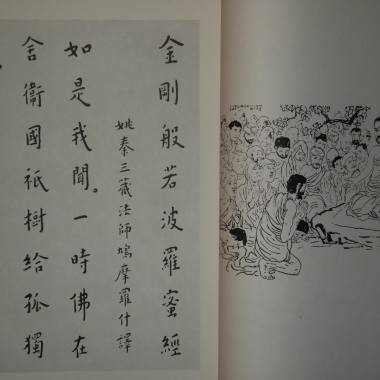 金剛般若波羅蜜經
姚秦三藏法師鳩摩羅什譯
如是我聞。一時佛在
舍衞國祇樹給孤獨